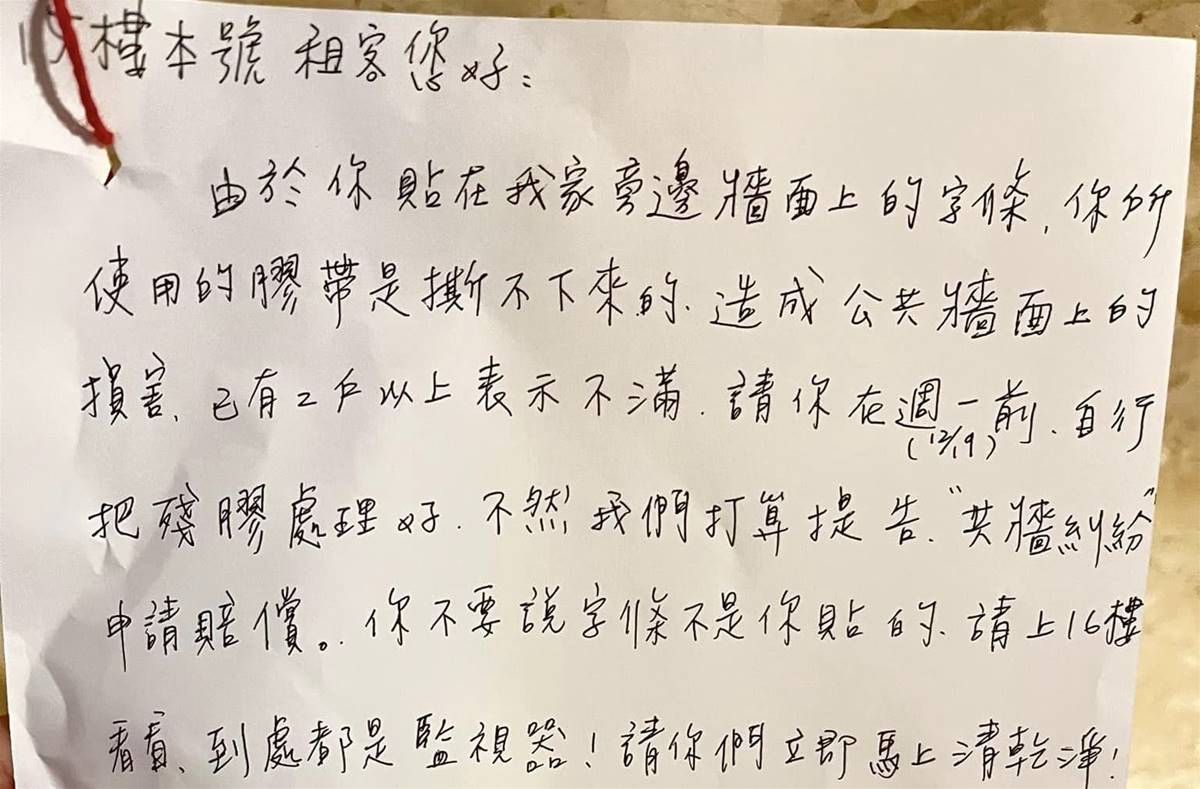 15樓本號 租客您好：
由於你貼在我家旁邊牆面上的字條，你所
使用的膠帶是撕不下來的、造成公共牆面上的
損害、已有2戶以上表示不滿、請你在週一前、自行
(12/19)
把殘膠處理好、不然我們打算提告、"共牆糾紛"
申請賠償。你不要說字條不是你貼的、請上16樓
看看、到處都是監視器！請你們立即馬上清乾淨！